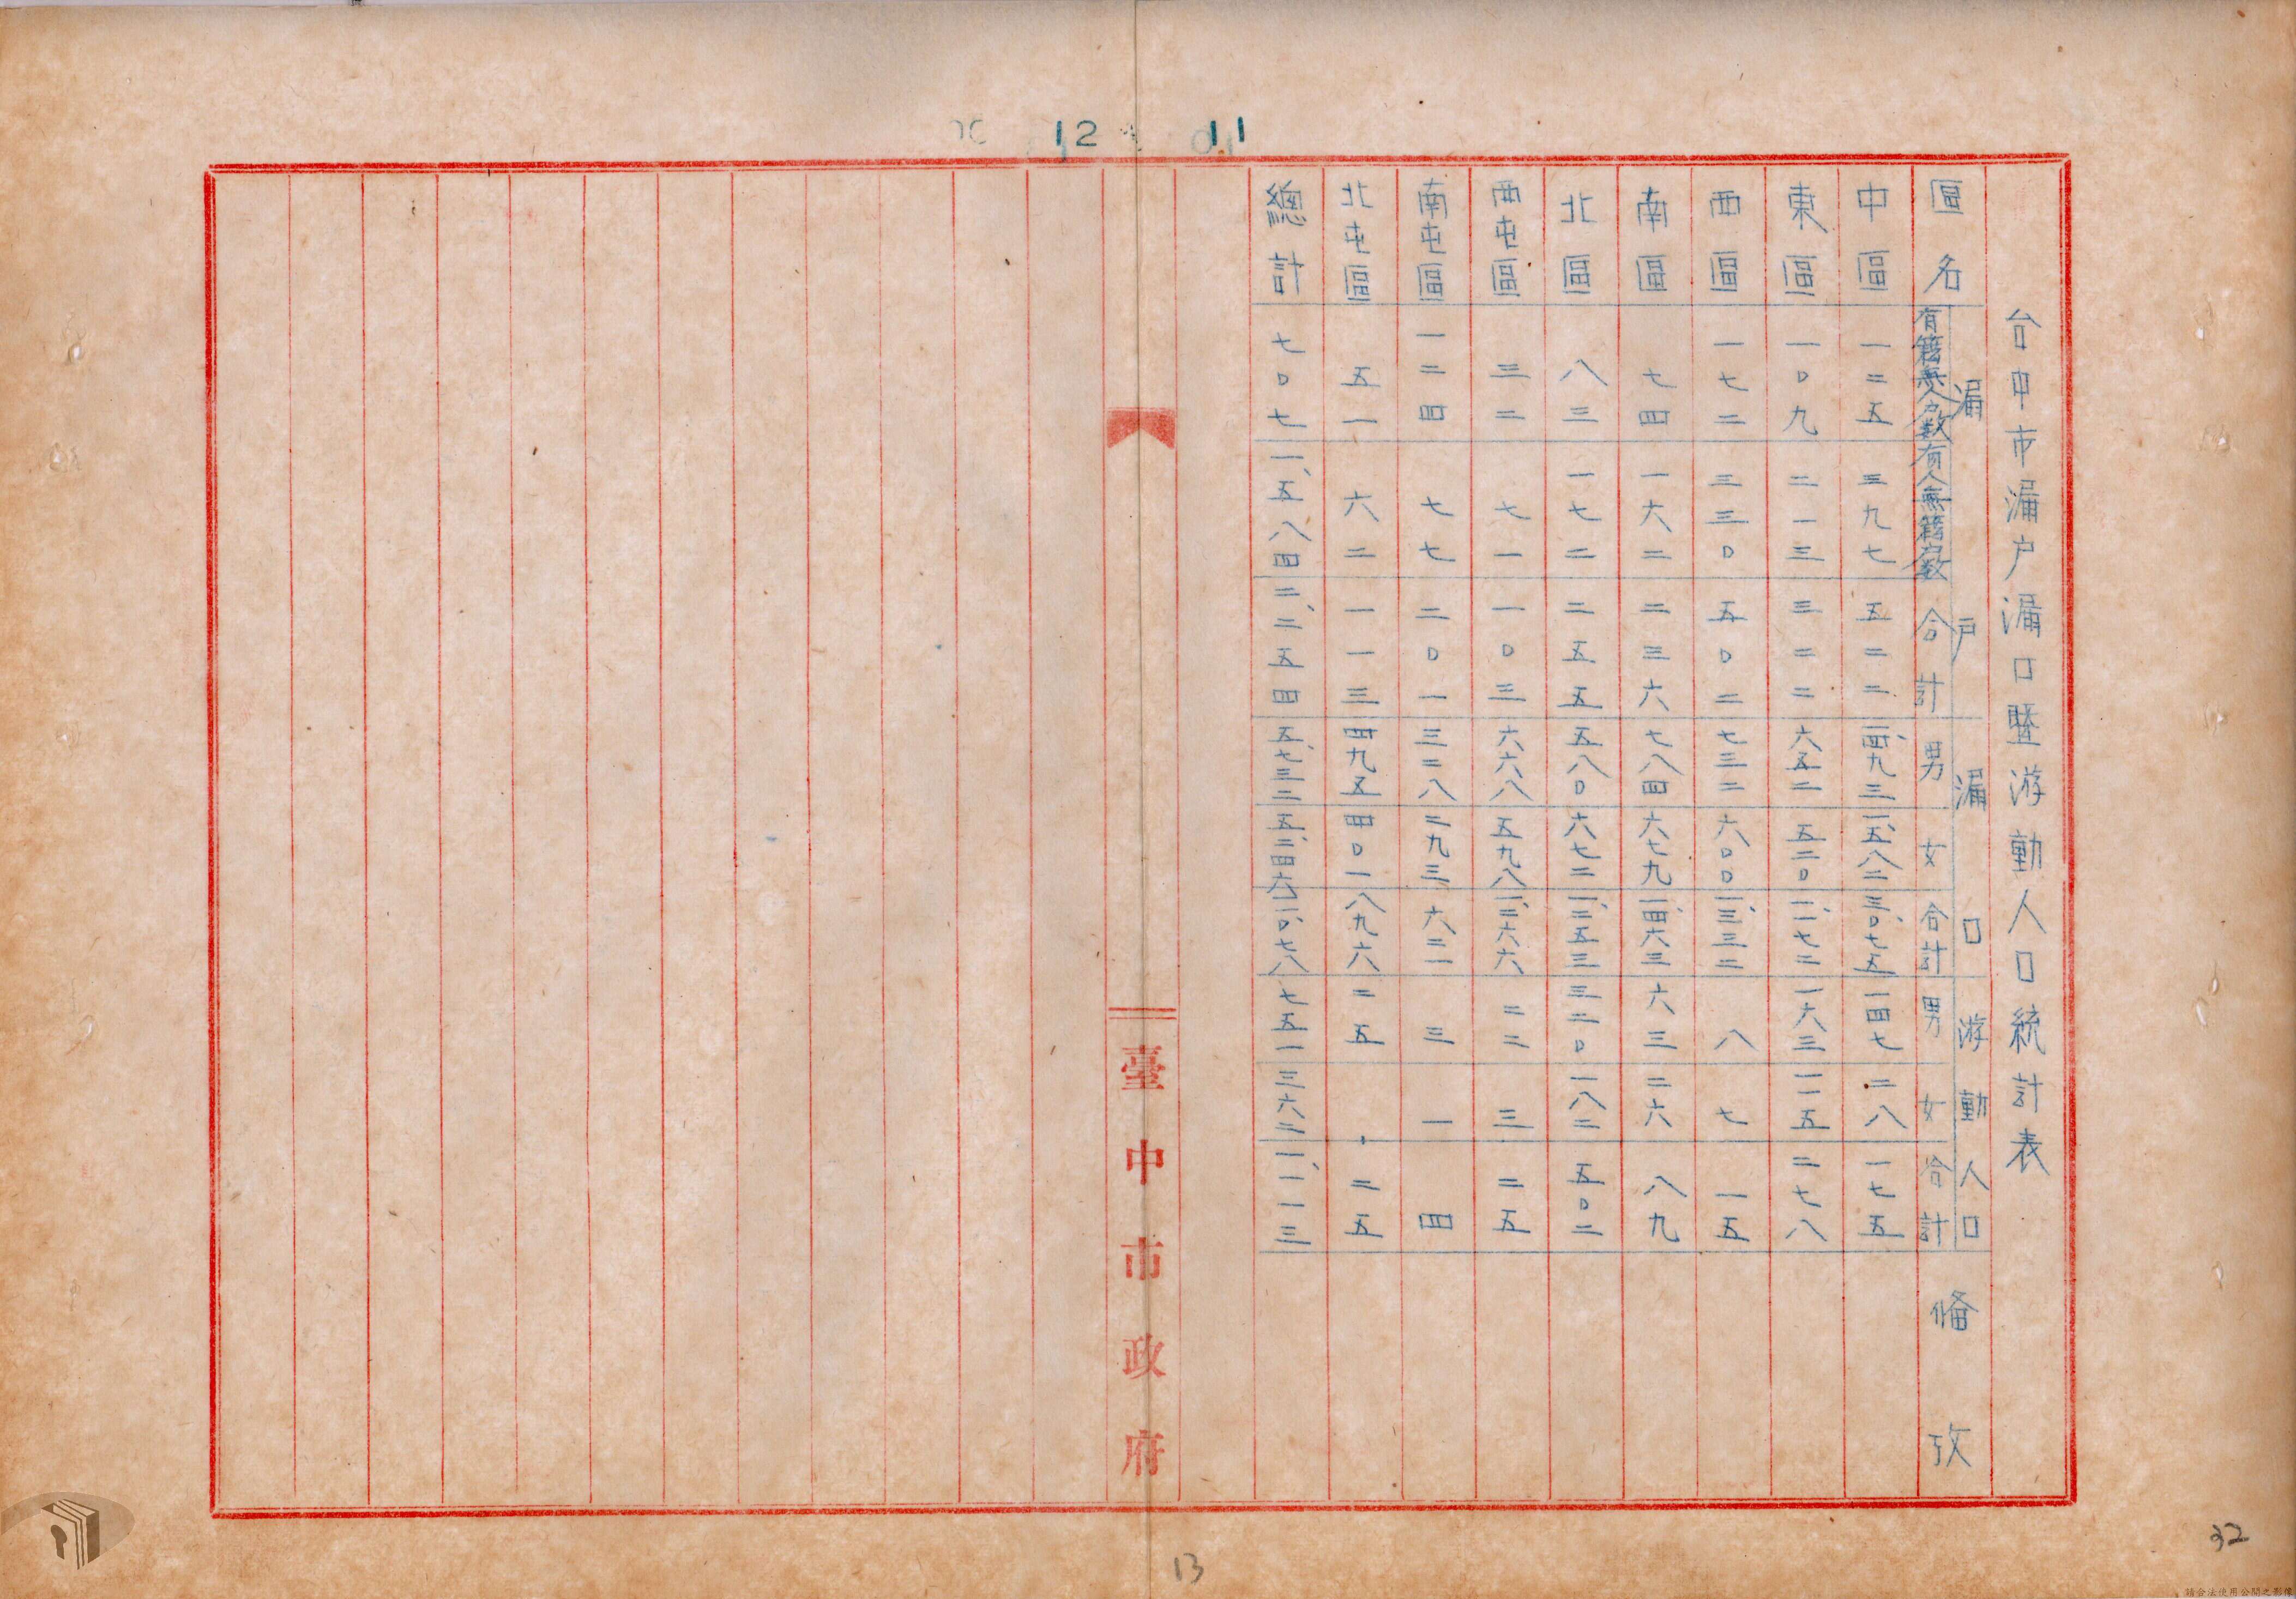 11
12
台中市漏户漏口暨游動人口統計表
區名 漏户 漏口 游動人口 备攷
有籍無人户数 有人無籍户数 合計 男 女 合計 男 女 合計
中區 一二五 三九七 五二二 一、四九三 一、五八二 三、０七五 一四七 二八 一七五
東區 一０九 二一三 三二二 六五二 五二０ 一、一七二 一六三 一一五 二七八
西區 一七二 三三０ 五０二 七三二 六００ 一、三三二 八 七 一五
南區 七四 一六二 二三六 七八四 六七九 一、四六三 六三 二六 八九
北區 八三 一七二 二五五 五八０ 六七三 一、二五三 三二０ 一八二 五０二
西屯區 三二 七一 一０三 六六八 五九八 一、二六六 二二 三 二五
南屯區 一二四 七七 二０一 三二八 二九三 六二一 三 一 四
北屯區 五一 六二 一一三 四九五 四０一 八九六 二五 . 二五
總計 七０七 一、五八四 二、二五四 五、七三二 五、三四六 一０、七八 七五一 三六二 一、一一三
臺中市政府
13
32
請合法使用公開之影像